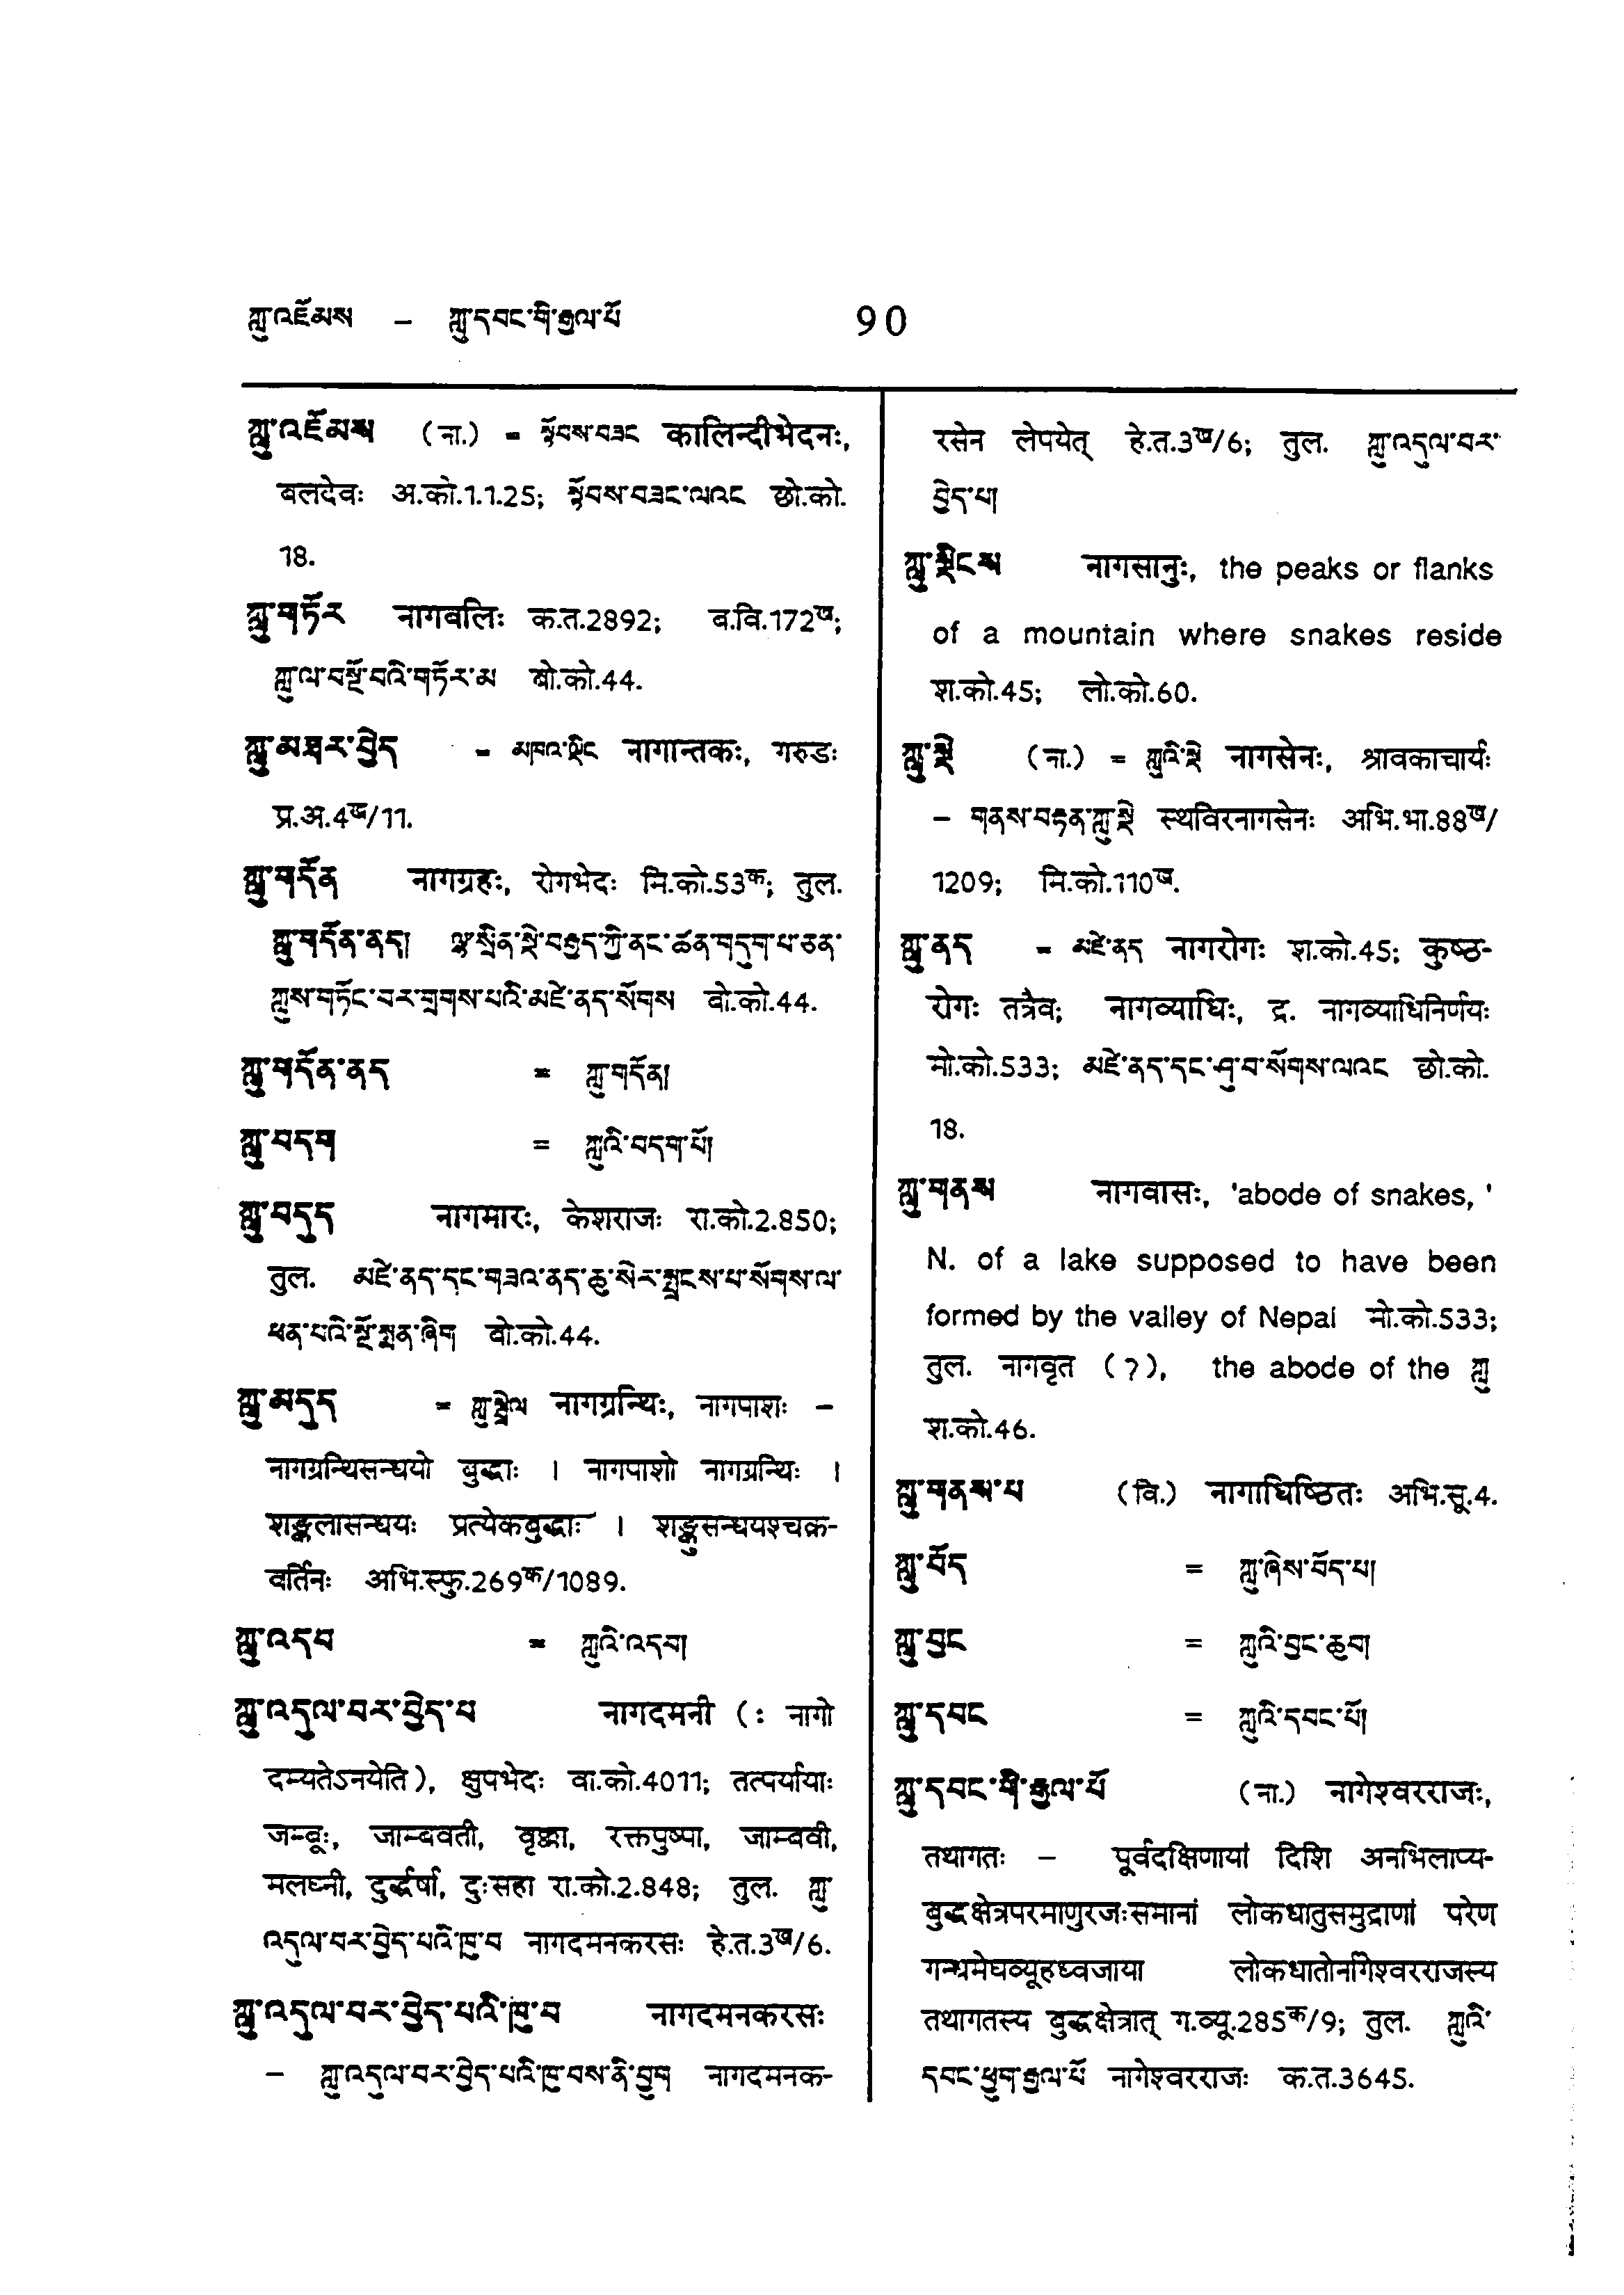 ཀླུ་འཇོམས – ཀླུ་དབང་གི་རྒྱལ་པོ 90
ཀླུ་འཇོམས (ना.) = སྟོབས་བཟང कालिन्दीभेदनः,
बलदेवः अ.को.1.1.25; སྟོབས་བཟང་ལའང छो.को.
18.
ཀླུ་གཏོར नागबलिः क.त.2892; ब.वि.172ख;
ཀླུ་ལ་བསྔོ་བའི་གཏོར་མ बो.को.44.
ཀླུ་མཐར་བྱེད = མཁའ་ལྡིང नागान्तकः, गरुडः
प्र.अ.4ख/11.
ཀླུ་གདོན नागग्रहः, रोगभेदः मि.को.53क; तुल.
ཀླུ་གདོན་ནད། ལྷ་སྲིན་སྡེ་བརྒྱད་ཀྱི་ནང་ཚན་གདུག་པ་ཅན་
ཀླུས་གཏོང་བར་གྲགས་པའི་མཛེ་ནད་སོགས बो.को.44.
ཀླུ་གདོན་ནད = ཀླུ་གདོན།
ཀླུ་བདག = ཀླུའི་བདག་པོ།
ཀླུ་བདུད नागमारः, केशराजः रा.को.2.850;
तुल. མཛེ་ནད་དང་གཟའ་ནད་ཆུ་སེར་སྨྲངས་པ་སོགས་ལ་
ཕན་པའི་སྔོ་སྨན་ཞིག बो.को.44.
ཀླུ་མདུད = ཀླུ་སྦྲེལ नागग्रन्थिः, नागपाशः –
नागग्रन्थिसन्धयो बुद्धाः । नागपाशो नागग्रन्थिः ।
शङ्कलासन्धयः प्रत्येकबुद्धाः । शङ्कुसन्धयश्चक्र-
वर्तिनः अभि.स्फु.269क/1089.
ཀླུ་འདབ = ཀླུའི་འདབ།
ཀླུ་འདུལ་བར་བྱེད་པ नागदमनी (: नागो
दम्यतेऽनयेति), क्षुपभेदः वा.को.4011; तत्पर्यायाः
जम्बूः, जाम्बवती, वृक्का, रक्तपुष्पा, जाम्बवी,
मलघ्नी, दुर्द्धर्षा, दुःसहा रा.को.2.848; तुल. ཀླུ་
འདུལ་བར་བྱེད་པའི་ཁུ་བ नागदमनकरसः हे.त.3ख/6.
ཀླུ་འདུལ་བར་བྱེད་པའི་ཁུ་བ नागदमनकरसः
– ཀླུ་འདུལ་བར་བྱེད་པའི་ཁུ་བས་ནི་བྱུག नागदमनक-
रसेन लेपयेत् हे.त.3ख/6; तुल. ཀླུ་འདུལ་བར་
བྱེད་པ།
ཀླུ་སྡིངས नागसानुः, the peaks or flanks
of a mountain where snakes reside
श.को.45; लो.को.60.
ཀླུ་སྡེ (ना.) = ཀླུའི་སྡེ नागसेनः, श्रावकाचार्यः
– གནས་བརྟན་ཀླུ་སྡེ स्थविरनागसेनः अभि.भा.88ख/
1209; मि.को.110ख.
ཀླུ་ནད = མཛེ་ནད नागरोगः श.को.45; कुष्ठ-
रोगः तत्रैव; नागव्याधिः, द्र. नागव्याधिनिर्णयः
मो.को.533; མཛེ་ནད་དང་ཤུ་བ་སོགས་ལའང छो.को.
18.
ཀླུ་གནས नागवासः, 'abode of snakes, '
N. of a lake supposed to have been
formed by the valley of Nepal मो.को.533;
तुल. नागवृत (?), the abode of the ཀླུ
श.को.46.
ཀླུ་གནས་པ (वि.) नागाधिष्ठितः अभि.सू.4.
ཀླུ་བོད = ཀླུ་ཞེས་བོད་པ།
ཀླུ་བྱང = ཀླུའི་བྱང་ཆུབ།
ཀླུ་དབང = ཀླུའི་དབང་པོ།
ཀླུ་དབང་གི་རྒྱལ་པོ (ना.) नागेश्वरराजः,
तथागतः – पूर्वदक्षिणायां दिशि अनभिलाप्य-
बुद्धक्षेत्रपरमाणुरजःसमानां लोकधातुसमुद्राणां परेण
गन्धमेघव्यूहध्वजाया लोकधातोर्नागेश्वरराजस्य
तथागतस्य बुद्धक्षेत्रात् ग.व्यू.285क/9; तुल. ཀླུའི་
དབང་ཕྱུག་རྒྱལ་པོ नागेश्वरराजः क.त.3645.